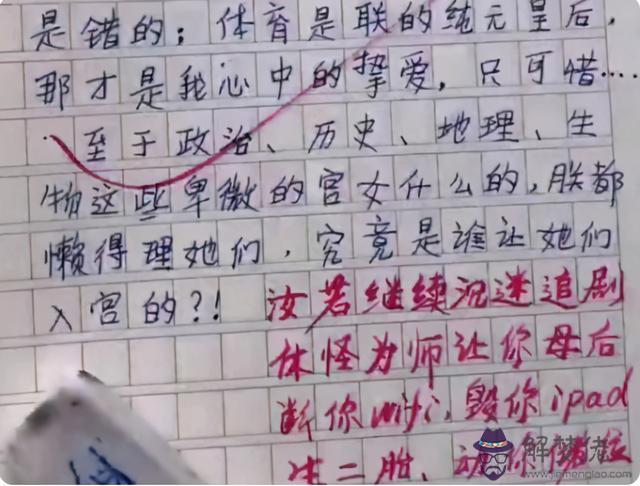 是错的；体育是联的纯元皇后，
那才是我心中的挚爱，只可惜……
至于政治、历史、地理、生
物这些卑微的宫女什么的，朕都
懒得理她们，究竟是谁让她们
入宫的？！ 汝若继续沉迷追剧
休怪为师让你母后
断你wifi，毁你ipad
生二胎、动你储位
解梦佬
www.jiemenglao.com